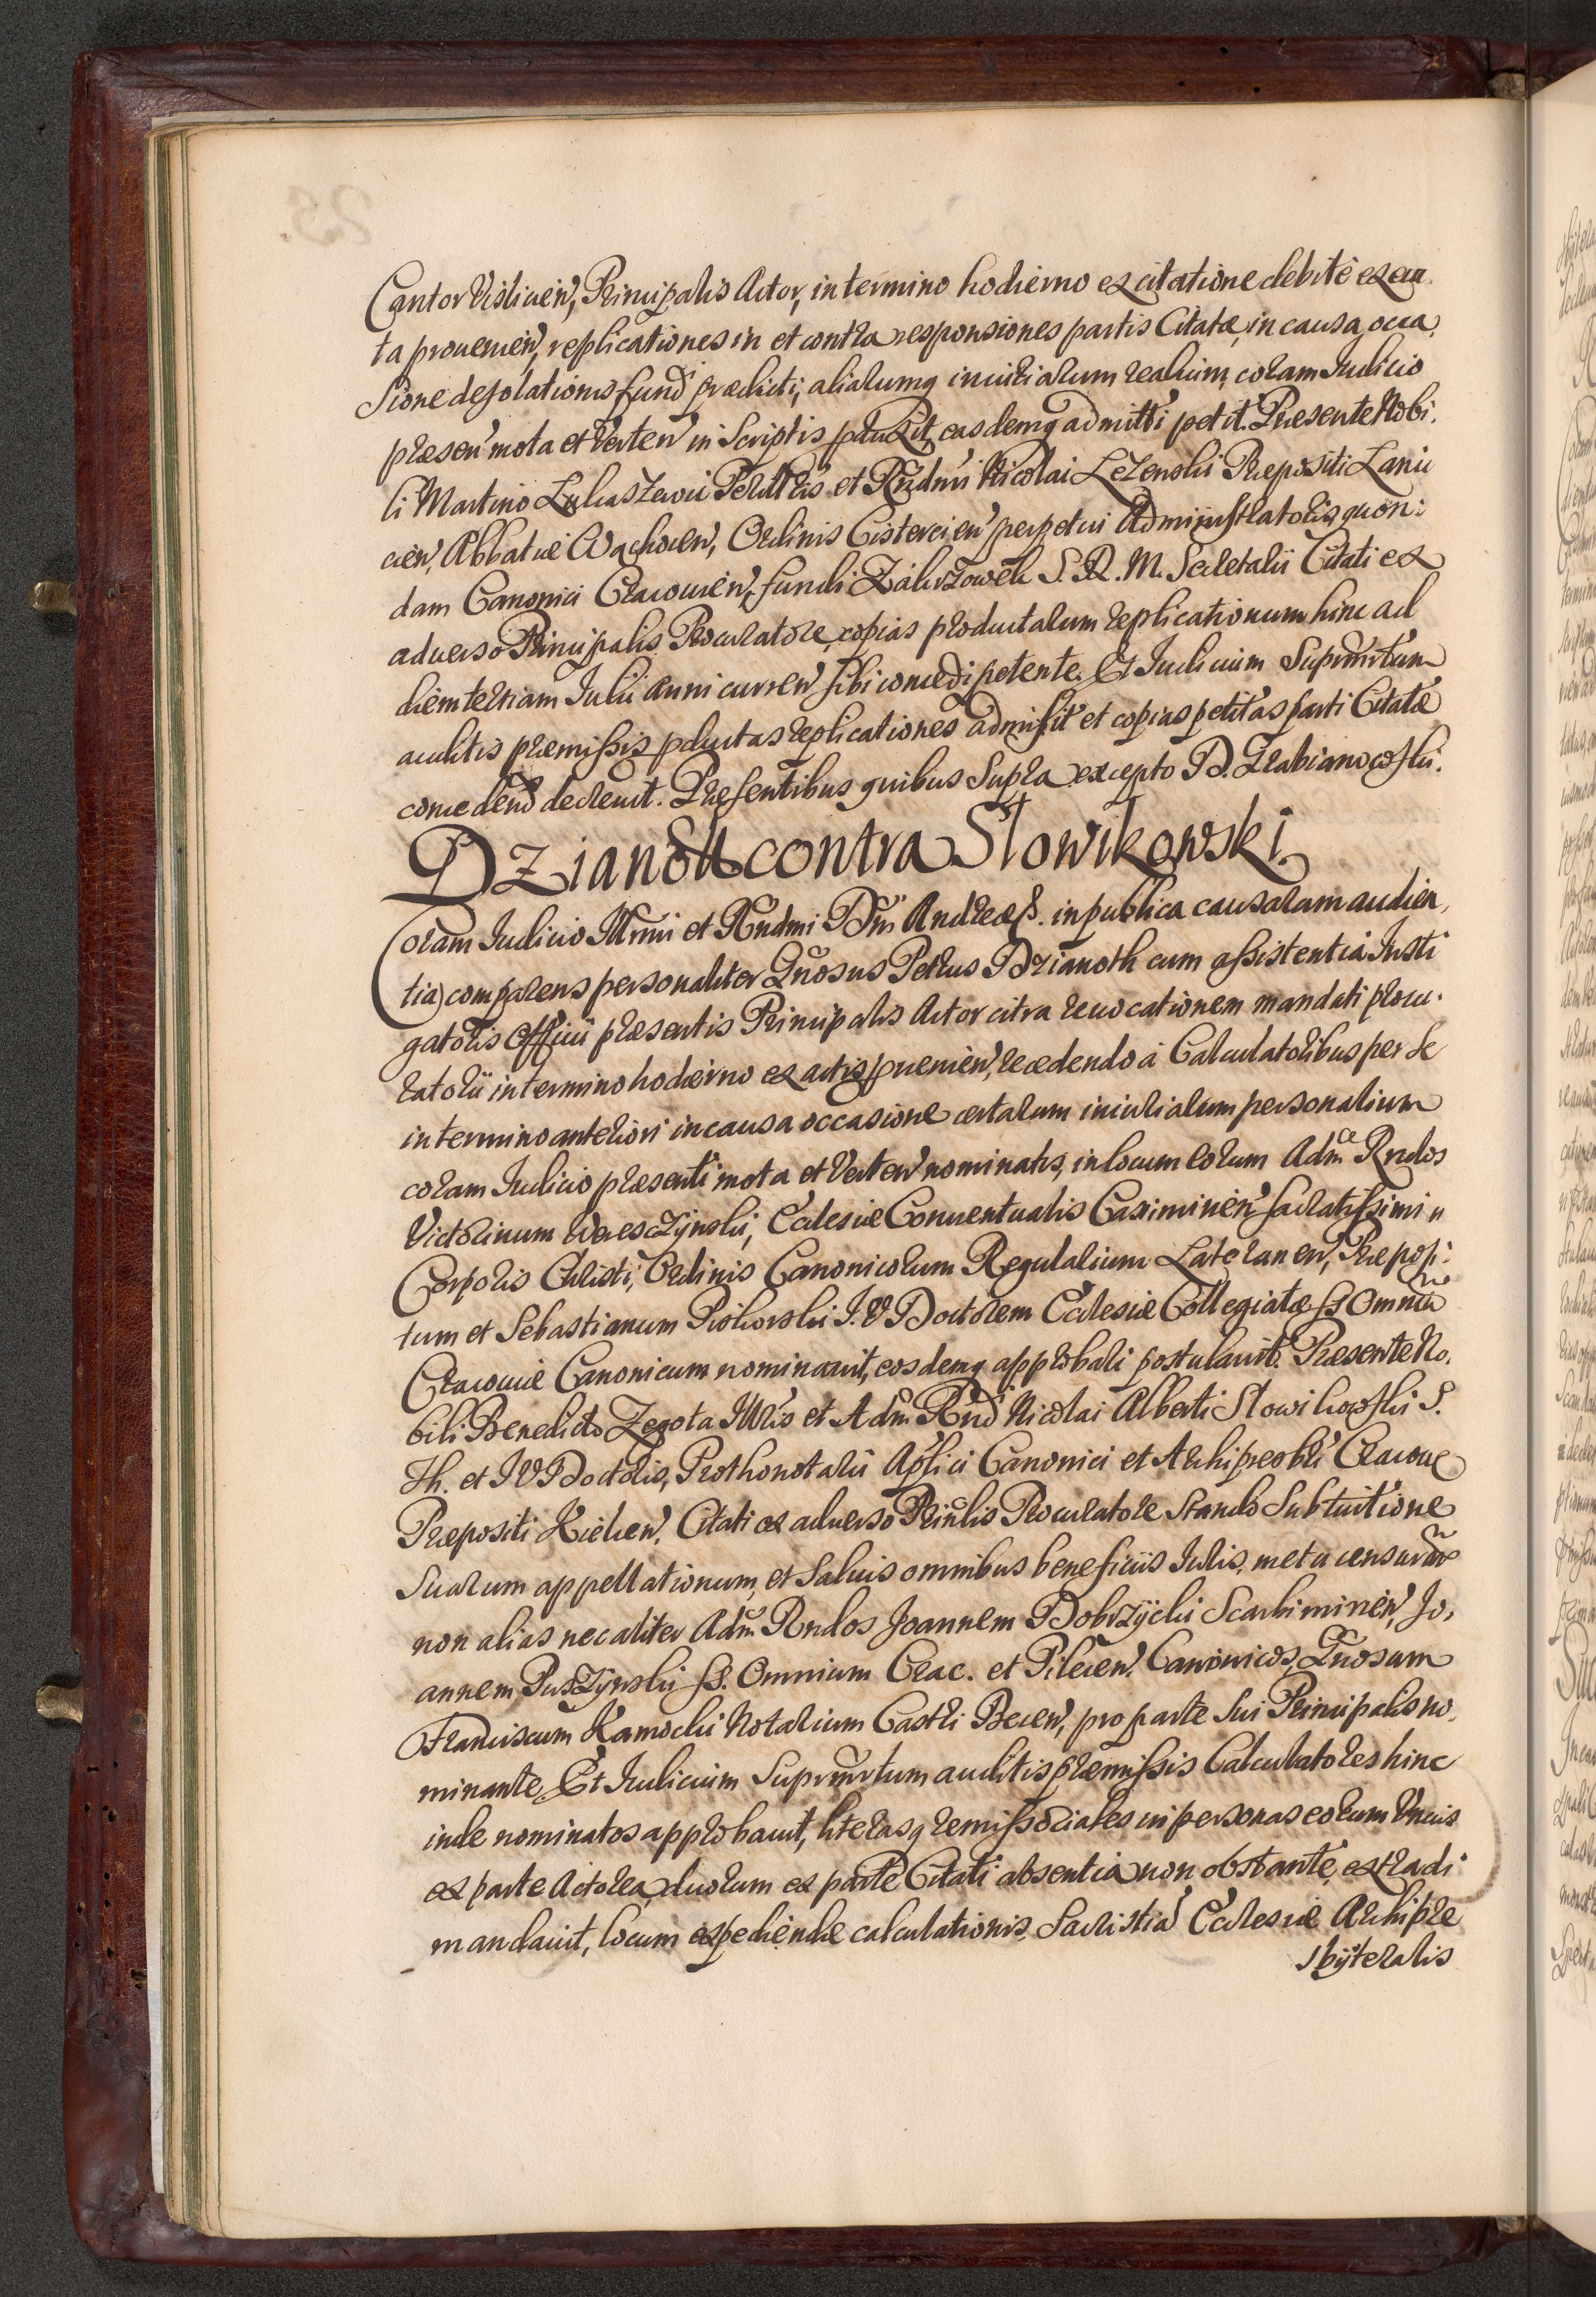 Cantor Vislicien, Principalis Actor, in termino hodierno ex citatione debite execu
ta provenien, replicationes in et contra responsiones partis Citatæ, in causa occa
sione desolationis fund prædicti, aliarumq iniuriarum realium coram Iudicio
præsen mota et verten in Scriptis pduxit, easdemq admitti petit. Præsente Nobi
li Martino Lukaszewic Perillris et Rndmi Nicolai Præpositi
cien, Abbatiæ Wachocen, Ordinis Cistercien perpetui Administratoris, quon
dam Canonici Cracovien, fundi S. R. M. Secretarii Citati ex
adverso Principalis Procuratore, copias productarum replicationum hinc ad
diem tertiam Iulii anni curren sibi concedi petente. Et Iudicium Supranrtum
auditis præmissis pductas replicationes admisit et copias petitas parti Citatæ
concedend decrevit. Præsentibus quibus Supra excepto D. Grabianowski.
Dzianott contra Slowikowski.
Coram Iudicio Illmi et Rndmi Dni Andreæ S. in publica causarum audien
tia) comparens personaliter Gnosus Petrus Dzianoth cum assistentia Insti
gatoris Officii præsentis Principalis Actor citra revocationem mandati procu
ratorii in termino hodierno ex actis pvenien, recedendo à Calculatoribus per se
in termino anteriori in causa occasione certarum iniuriarum personalium
coram Iudicio præsenti mota et verten nominatis, in locum eorum Adm Rndos
Victorinum Wereszczynski, Ecclesiæ Conventualis Casimirien Sacratissimi
Corporis Christi, Ordinis Canonicorum Regularium Lateranen, Præposi
tum et Sebastianum Piskorski I. V Doctorem Ecclesiæ Collegiatæ SS Omniu
Cracoviæ Canonicum nominavit, eosdemq approbari postulavit. Præsente No
bili Benedicto Zegota Illris et Adm Rnd Nicolai Alberti Slowikowski S.
Th. et I V Doctoris, Prothonotarii Aplici Canonici et Archipresbri Cracove
Præpositi Kielcen, Citati ex adverso Princlis Procuratore Stando Sub tuitione
Suarum appellationum, et Salvis omnibus beneficiis Iuris, metu censurar
non alias nec aliter Adm Rndos Joannem Dobrzycki Scarbimirien, Jo
annem Puszynski SS. Omnium Crac. et Pilecen. Canonicos, Gnosum
Franciscum Kamocki Notarium Castri Becen, pro parte Sui Principalis no
minante, Et Iudicium Supranrtum auditis præmissis Calculatores hinc
inde nominatos approbavit, literasq remissoriales in personas eorum Unius
ex parte Actorea duorum ex parte Citati absentia non obstante, extradi
mandavit, locum expediendæ calculationis, Sacristia Ecclesiæ Archipre
sbyteralis